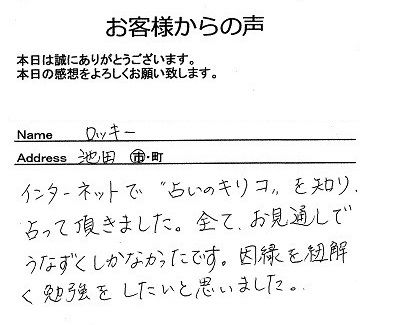 お客様からの声
本日は誠にありがとうございます。
本日の感想をよろしくお願い致します。
Name ロッキー
Address 池田 市・町
インターネットで "占いのキリコ" を知り、
占って頂きました。全て、お見通しで
うなずくしかなかったです。因縁を紐解
く勉強をしたいと思いました。